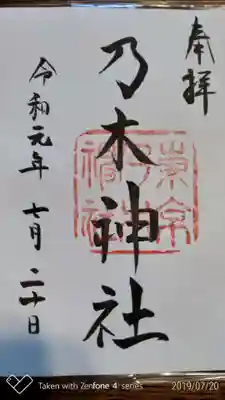 奉拝
乃木神社
令和元年 七月 二十日
Taken with Zenfone 4 series
2019/07/20